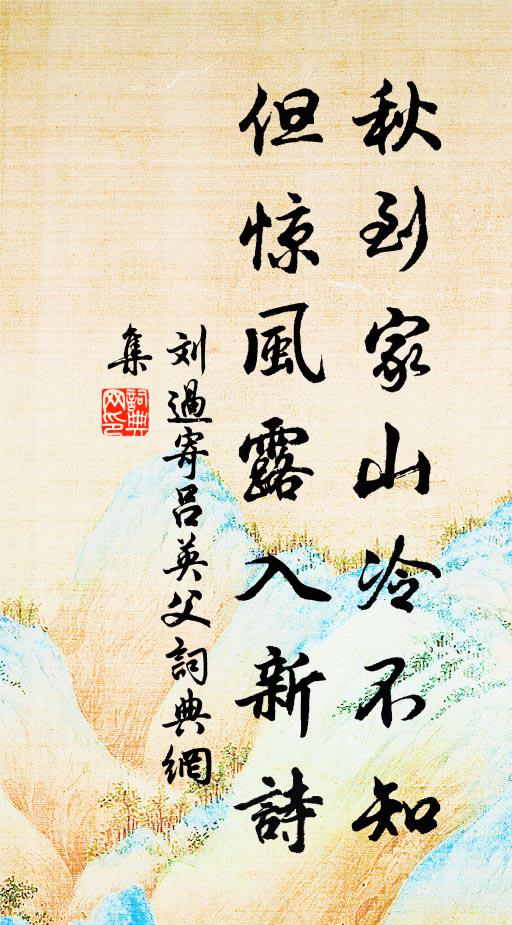 秋到家山冷不知
但惊風露入新詩
刘過寄吕英父詞典網
集
詞典
网印